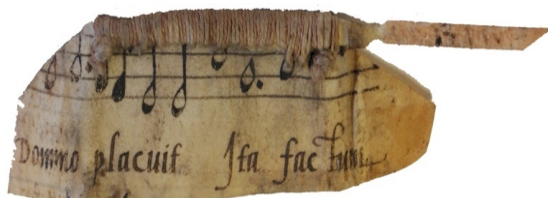 Domino placuit Ita factum